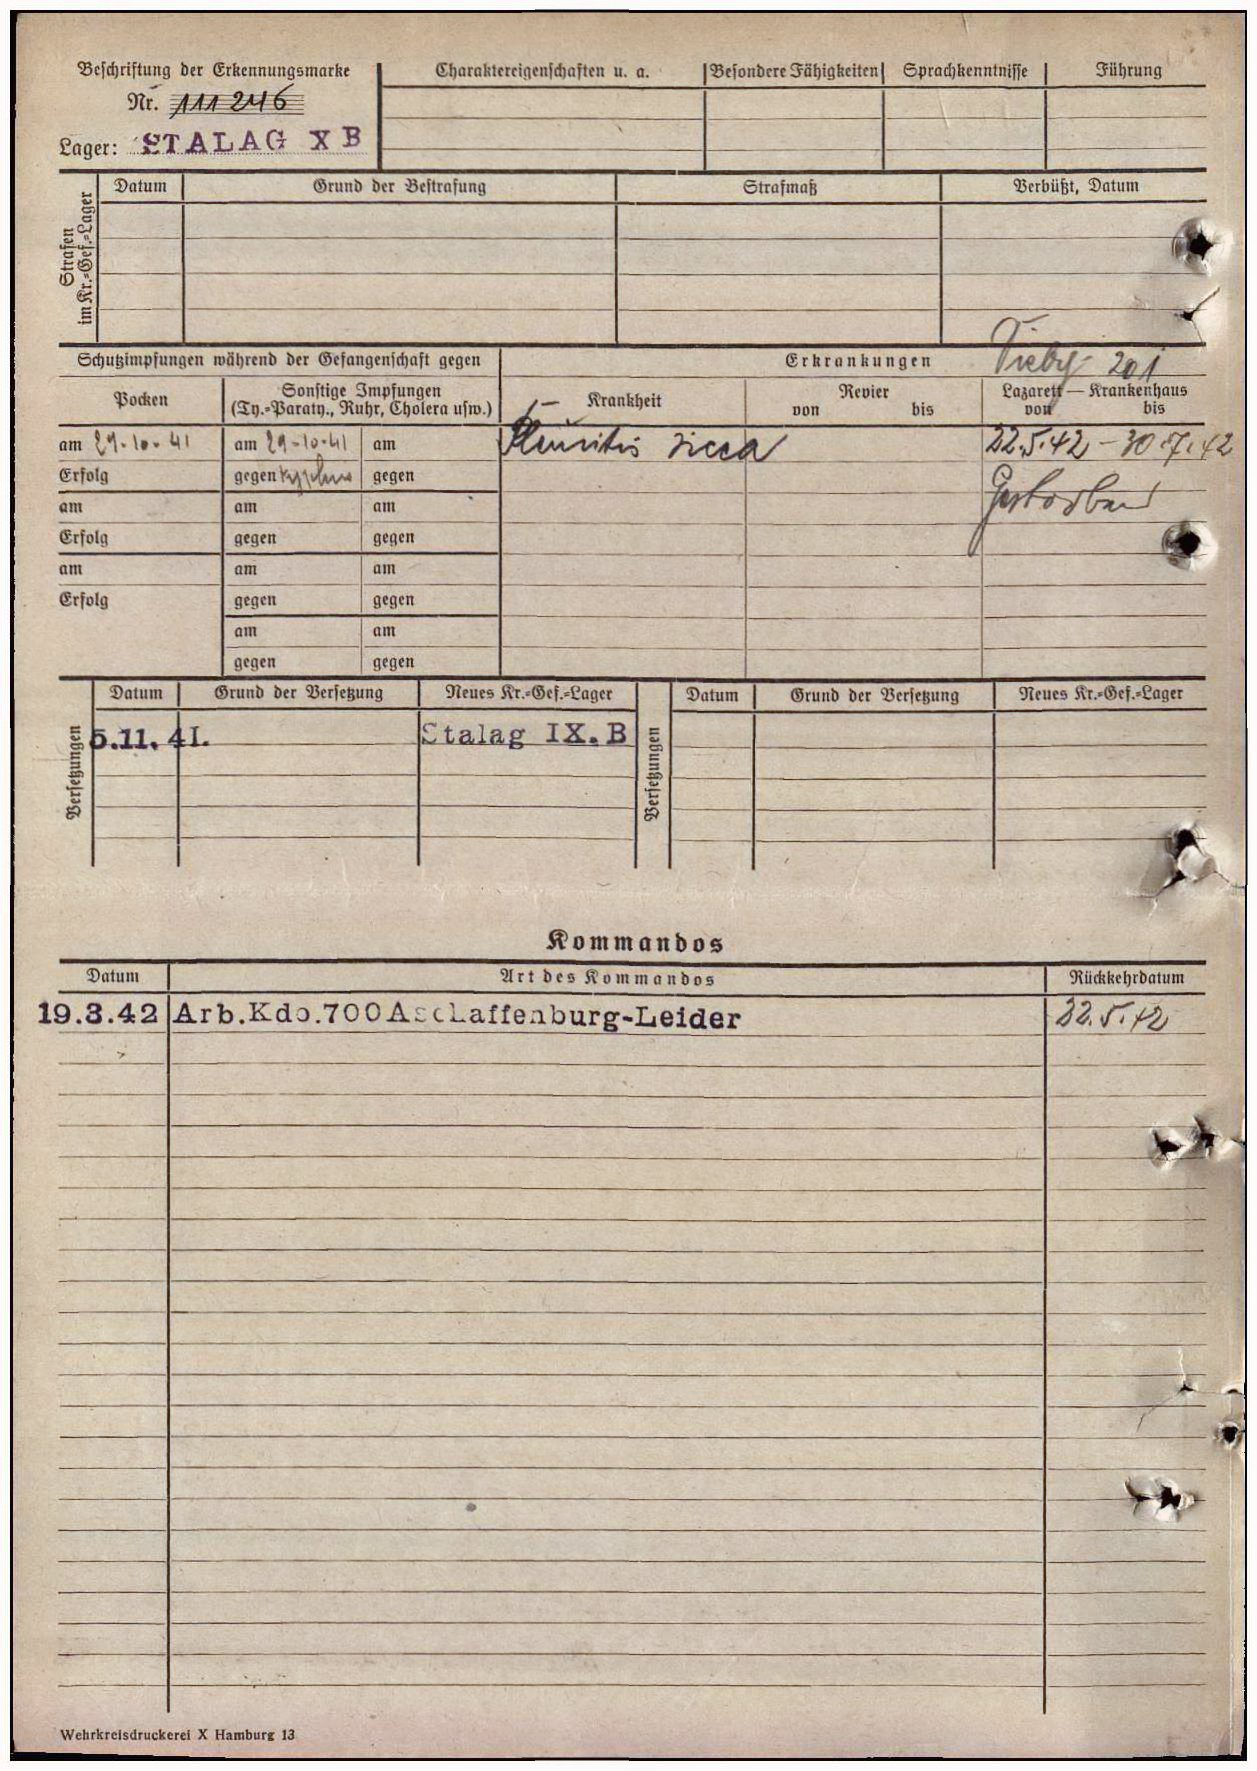 Beschriftung der Erkennungsmarke
Nr. 111 246
Lager: STALAG X B
Charaktereigenschaften u. a.
Besondere Fähigkeiten
Sprachkenntnisse
Führung
Strafen im Kr.=Gef.=Lager
Datum
Grund der Bestrafung
Strafmaß
Verbüßt, Datum
Schutzimpfungen während der Gefangenschaft gegen
Erkrankungen
201
Pocken
Sonstige Impfungen
(Ty.=Paraty., Ruhr, Cholera usw.)
Krankheit
Revier
von bis
Lazarett — Krankenhaus
von bis
am 29-10-41 am 29-10-41 am
Pleuritis sicca
22.5.42 - 30.7.42
Erfolg gegen Typhus gegen
Gestorben
am am am
Erfolg gegen gegen
am am am
Erfolg gegen gegen
am am
gegen gegen
Versetzungen
Datum Grund der Versetzung Neues Kr.=Gef.=Lager
5.11.41. Stalag IX.B
Versetzungen
Datum Grund der Versetzung Neues Kr.=Gef.=Lager
Kommandos
Datum Art des Kommandos Rückkehrdatum
19.3.42 Arb.Kdo.700 Aschaffenburg-Leider 22.5.42
Wehrkreisdruckerei X Hamburg 13